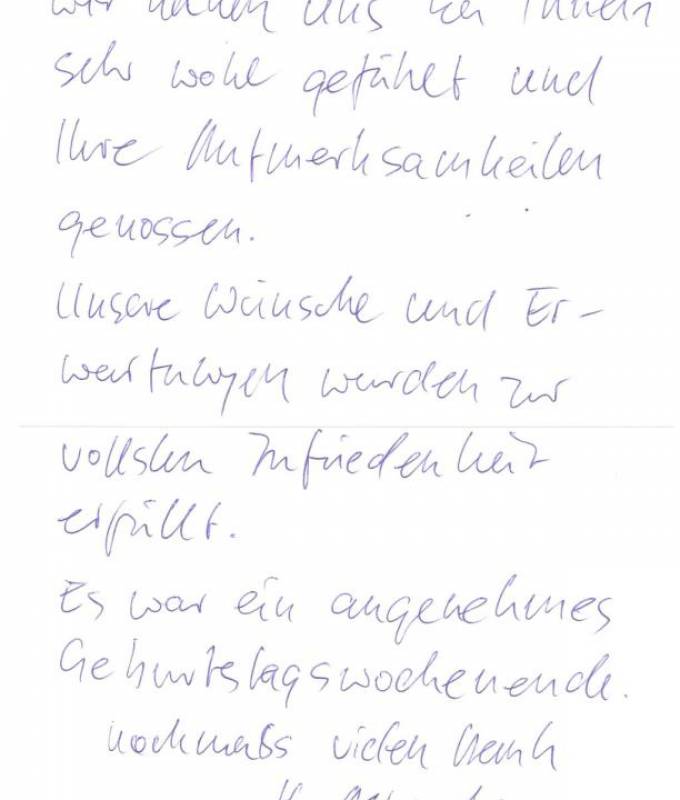 wir haben uns bei Ihnen
sehr wohl gefühlt und
Ihre Aufmerksamkeiten
genossen.
Unsere Wünsche und Er-
wartungen wurden zur
vollsten Zufriedenheit
erfüllt.
Es war ein angenehmes
Geburtstagswochenende.
nochmals vielen Dank